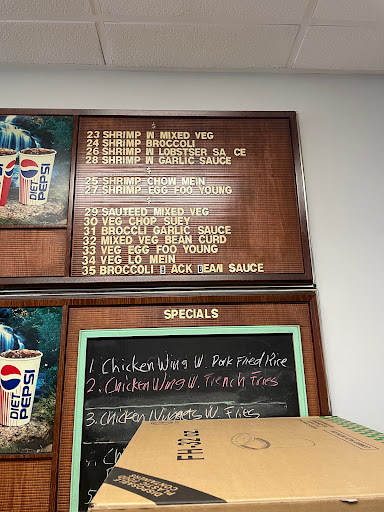 $
23 SHRIMP W MIXED VEG
24 SHRIMP BROCCOLI
26 SHRIMP W LOBSTSER SA CE
28 SHRIMP W GARLIC SAUCE
$
25 SHRIMP CHOW MEIN
27 SHRIMP EGG FOO YOUNG
$
29 SAUTEED MIXED VEG
30 VEG CHOP SUEY
31 BROCCLI GARLIC SAUCE
32 MIXED VEG BEAN CURD
33 VEG EGG FOO YOUNG
34 VEG LO MEIN
35 BROCCOLI B ACK BEAN SAUCE
DIET PEPSI
SPECIALS
1. Chicken Wing W. Pork Fried Rice
2. Chicken Wing W. French Fries
3. Chicken Nuggets W. Fries
4. Ch
5
DIET PEPSI
FH-32oz
DISPOSABLE
PLASTIC
CONTAINERS